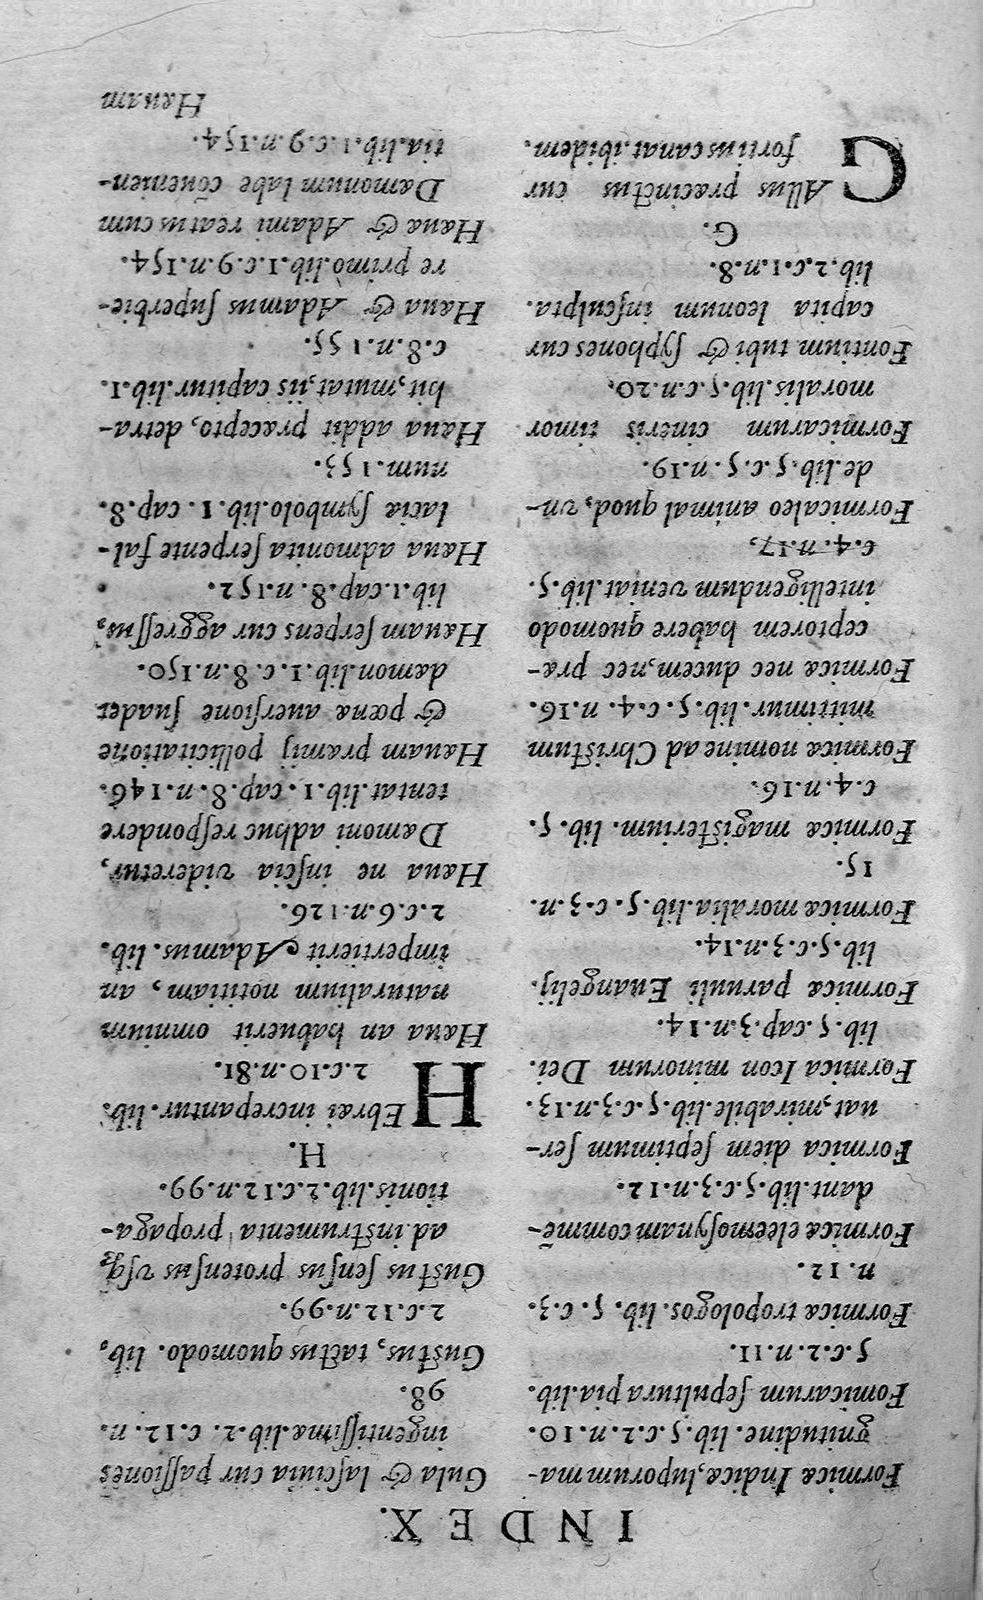 INDEX.
Formicæ Indicæ, luporum ma-
gnitudine. lib. 5. c. 2. n. 10.
Fomicarum ſepultura pia. lib.
5. c. 2. n. 11.
Formicæ tropologos. lib. 5. c. 3.
n. 12.
Formicæ eleemoſynam commē-
dant. lib. 5. c. 3. n. 12.
Formica diem ſeptimum ſer-
uat, mirabile. lib. 5. c. 3. n. 13.
Formica Icon minorum Dei.
lib. 5. cap. 3. n. 14.
Formicæ paruuli Euangelij.
lib. 5. c. 3. n. 14.
Formicæ moralia. lib. 5. c. 3. n.
15.
Formicæ magiſterium. lib. 5.
c. 4. n. 16.
Formicæ nomine ad Chriſtum
mittimur. lib. 5. c. 4. n. 16.
Formicæ nec ducem, nec præ-
ceptorem habere quomodo
intelligendum veniat. lib. 5.
c. 4. n. 17.
Formicaleo animal quod, vn-
de. lib. 5. c. 5. n. 19.
Formicarum cineris timor
moralis. lib. 5. c. n. 20.
Fontium tubi & ſyphones cur
capita leonum inſculpta.
lib. 2. c. 1. n. 8.
G.
GAllus præcinctus cur
fortius canat. ibidem.
Gula & laſciuia cur paſſiones
ingentiſſimæ. lib. 2. c. 12. n.
98.
Guſtus, tactus quomodo. lib.
2. c. 12. n. 99.
Guſtus ſenſus protenſus vſq;
ad inſtrumenta propaga-
tionis. lib. 2. c. 12. n. 99.
H.
HEbræi increpantur. lib.
2. c. 10. n. 81.
Hæua an habuerit omnium
naturalium notitiam, an
impertierit Adamus. lib.
2. c. 6. n. 126.
Hæua ne inſcia videretur,
Dæmoni adhuc reſpondere
tentat. lib. 1. cap. 8. n. 146.
Hæuam præmij pollicitatione
& pœnæ auerſione ſuadet
dæmon. lib. 1. c. 8. n. 150.
Hæuam ſerpens cur aggreſſus,
lib. 1. cap. 8. n. 152.
Hæua admonita ſerpente fal-
laciæ ſymbolo. lib. 1. cap. 8.
num. 153.
Hæua addit præcepto, detra-
hit, mutat, iis capitur. lib. 1.
c. 8. n. 155.
Hæua & Adamus ſuperbie-
re primò. lib. 1. c. 9. n. 154.
Hæua & Adami reatus cum
Dæmonum labe cōuenien-
tia. lib. 1. c. 9. n. 154.
Hæuam